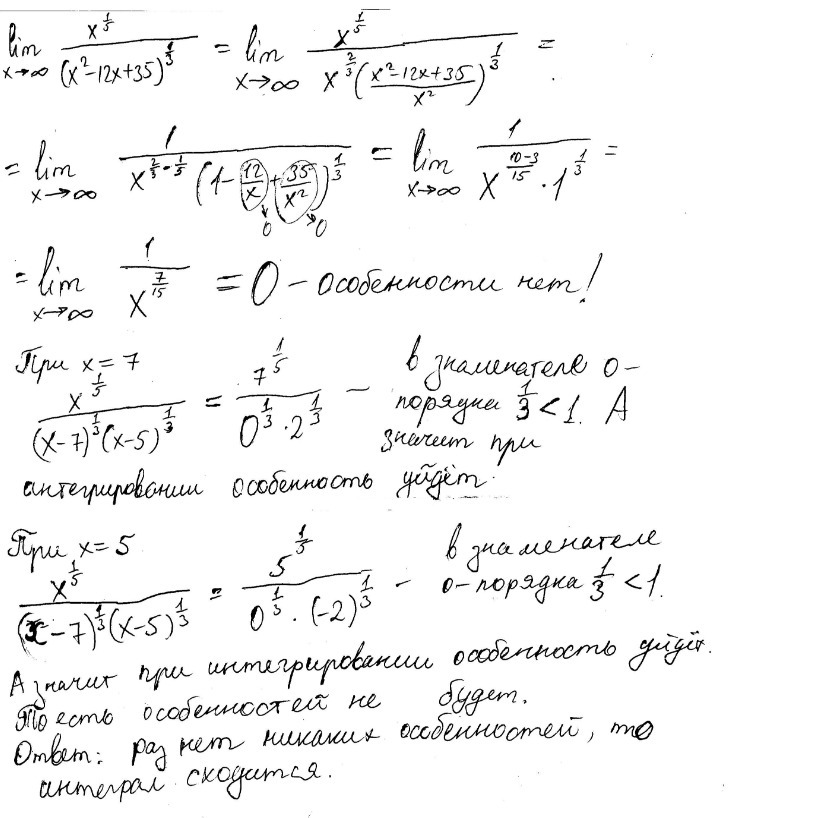 lim x→∞ x^(1/5) / (x²-12x+35)^(1/3) = lim x→∞ x^(1/5) / (x^(2/3) ((x²-12x+35)/x²)^(1/3)) =
= lim x→∞ 1 / (x^(2/3 - 1/5) (1 - 12/x + 35/x²)^(1/3)) = lim x→∞ 1 / (x^((10-3)/15) · 1^(1/3)) =
→0 →0
= lim x→∞ 1 / x^(7/15) = 0 – особенности нет!
При x=7
x^(1/5) / ((x-7)^(1/3) (x-5)^(1/3)) = 7^(1/5) / (0^(1/3) · 2^(1/3)) – в знаменателе 0-
порядка 1/3 < 1. А
значит при
интегрировании особенность уйдёт.
При x=5
x^(1/5) / ((x-7)^(1/3) (x-5)^(1/3)) = 5^(1/5) / (0^(1/3) · (-2)^(1/3)) – в знаменателе
0-порядка 1/3 < 1.
А значит при интегрировании особенность уйдёт.
То есть особенностей не будет.
Ответ: раз нет никаких особенностей, то
интеграл сходится.